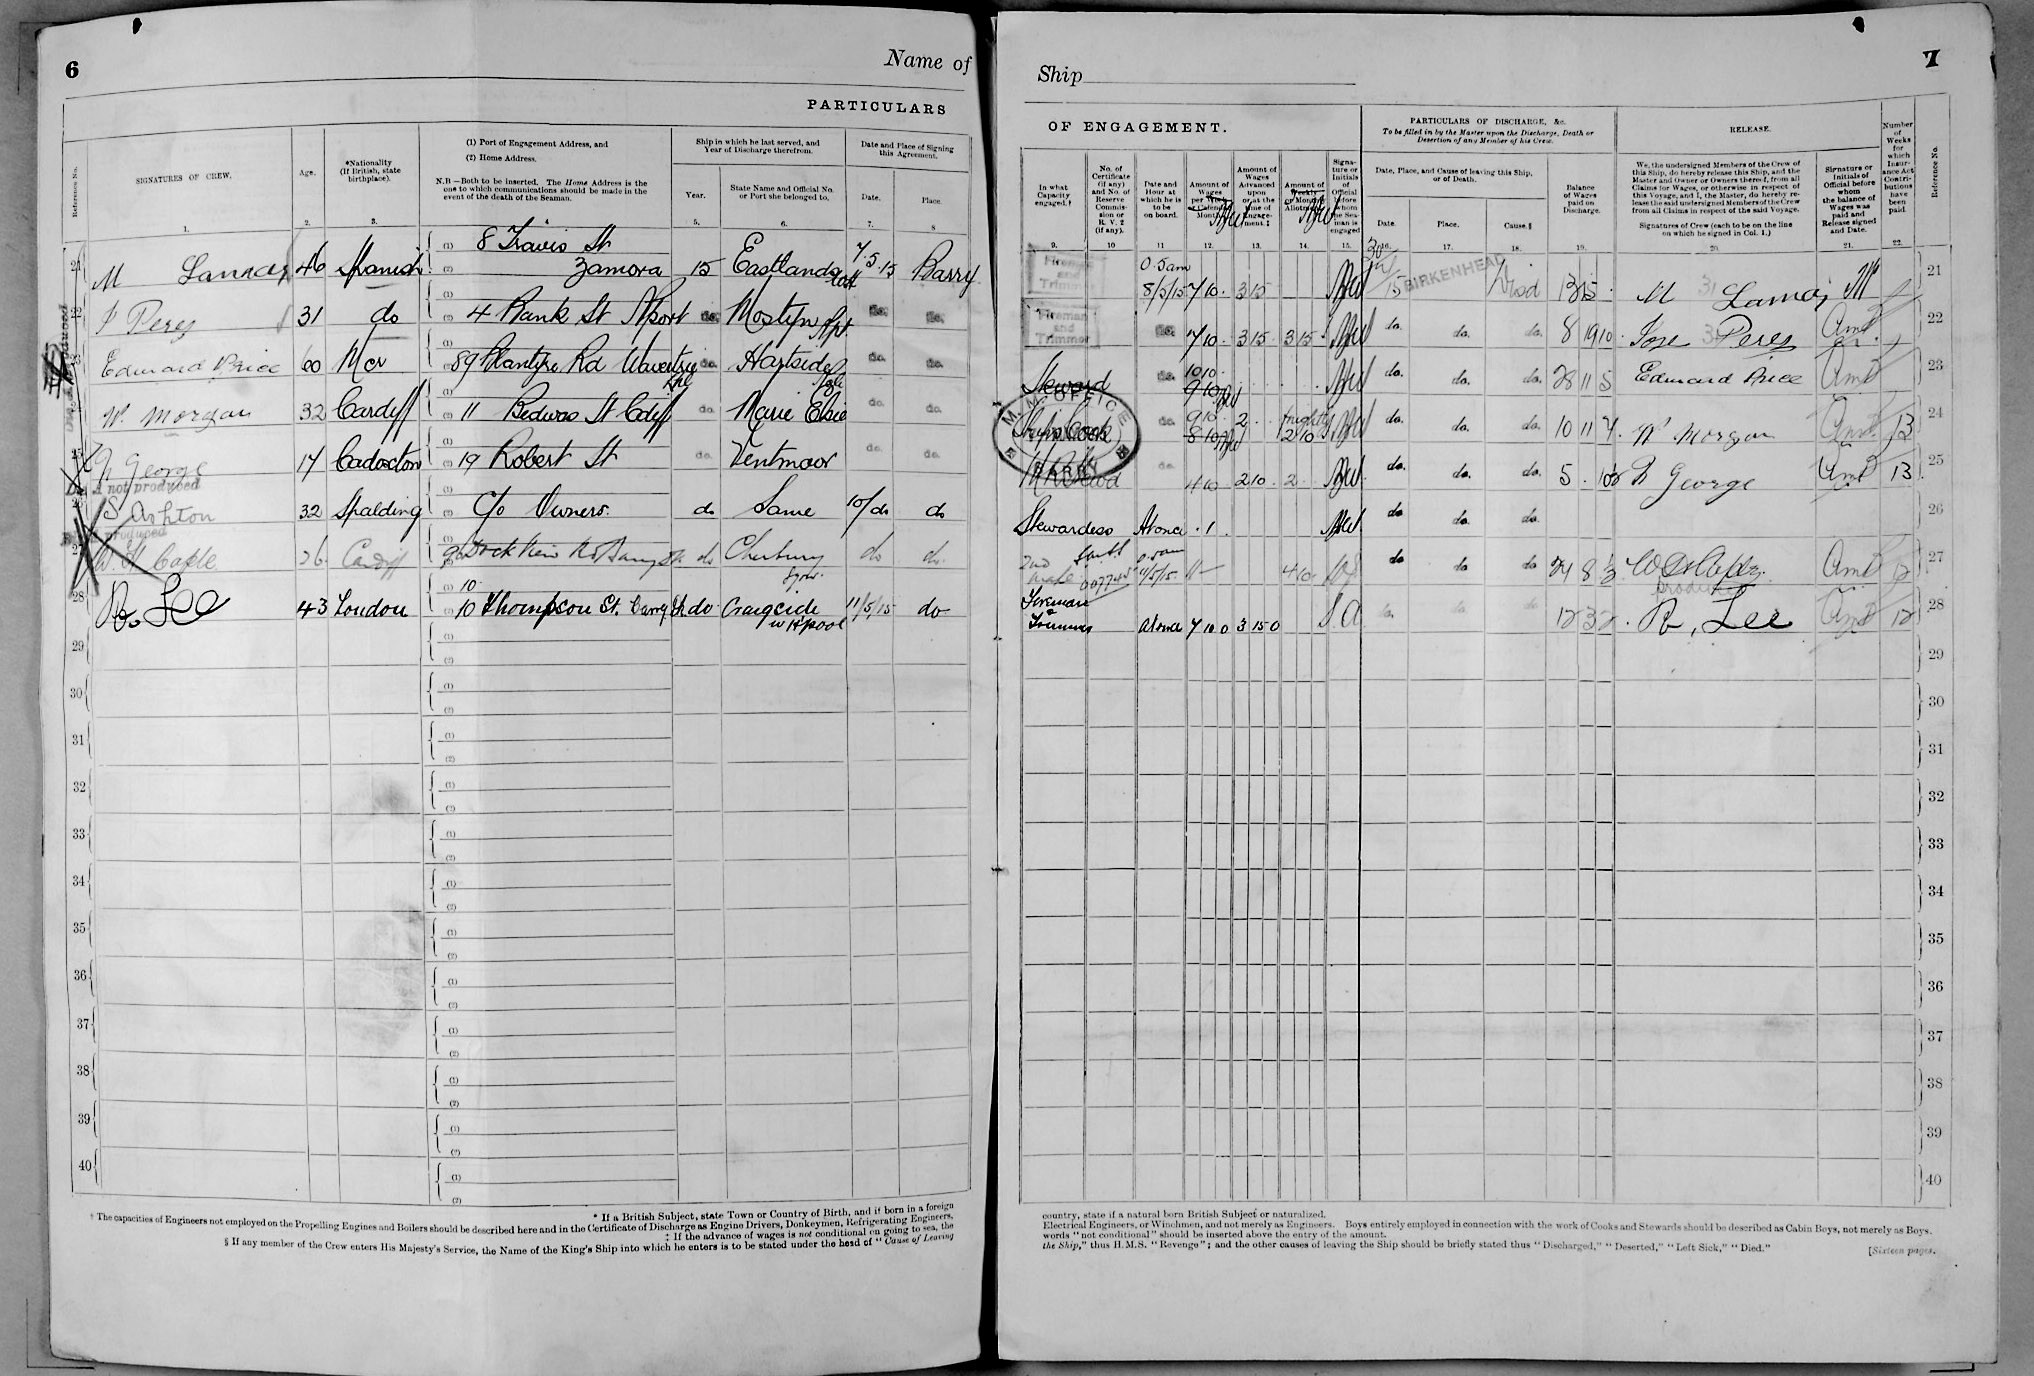 6
Name of
PARTICULARS
Reference No.
SIGNATURES OF CREW.
Age.
*Nationality
(If British, state
birthplace).
(1) Port of Engagement Address, and
(2) Home Address.
N.B—Both to be inserted. The Home Address is the
one to which communications should be made in the
event of the death of the Seaman.
Ship in which he last served, and
Year of Discharge therefrom.
Year.
State Name and Official No.
or Port she belonged to.
Date and Place of Signing
this Agreement.
Date.
Place.
1. 2. 3. 4 5. 6. 7. 8
21 M 46 Spanish 8 Travis St
Zamora 15 Eastlands 7.5.15 Barry
22 J Peres 31 do 4 Bank St Nport do. Mostyn Npt do. do.
23 Edward Price 60 Mcr 89 Blantyre Rd Wavertree do. Hartside do. do.
24 W. Morgan 32 Cardiff 11 Bedwas St Cdiff do. Marie Elsie do. do.
25 George 17 Cadoxton 19 Robert St do. Ventmoor do. do.
not produced
26 S. Ashton 32 Spalding C/o Owners. do Same 10/do do
produced
27 W. H. Caple 26 Cardiff Dock View Rd Barry do do do.
28 R. Lee 43 London 10
10 Thompson St. Barry do Craigside 11/5/15 do
W Hpool
29
30
31
32
33
34
35
36
37
38
39
40
* If a British Subject, state Town or Country of Birth, and if born in a foreign
† The capacities of Engineers not employed on the Propelling Engines and Boilers should be described here and in the Certificate of Discharge as Engine Drivers, Donkeymen, Refrigerating Engineers,
‡ If the advance of wages is not conditional on going to sea, the
§ If any member of the Crew enters His Majesty's Service, the Name of the King's Ship into which he enters is to be stated under the head of "Cause of Leaving
Ship
7
OF ENGAGEMENT.
PARTICULARS OF DISCHARGE, &c.
To be filled in by the Master upon the Discharge, Death or
Desertion of any Member of his Crew.
RELEASE.
Number
of
Weeks
for
which
Insur-
ance Act
Contri-
butions
have
been
paid.
Reference No.
In what
Capacity
engaged.†
No. of
Certificate
(if any)
and No. of
Reserve
Commis-
sion or
R. V. 2
(if any).
Date and
Hour at
which he is
to be
on board.
Amount of
Wages
per Week
or Calendar
Month.
Amount of
Wages
Advanced
upon
or at the
time of
Engage-
ment ‡
Amount of
Weekly
or Monthly
Allotment
Signa-
ture or
Initials
of
Official
before
whom
the Sea-
man is
engaged
Date, Place, and Cause of leaving this Ship,
or of Death.
Date.
Place.
Cause.§
Balance
of Wages
paid on
Discharge.
We, the undersigned Members of the Crew of
this Ship, do hereby release this Ship, and the
Master and Owner or Owners thereof, from all
Claims for Wages, or otherwise in respect of
this Voyage, and I, the Master, do hereby re-
lease the said undersigned Members of the Crew
from all Claims in respect of the said Voyage.
Signatures of Crew (each to be on the line
on which he signed in Col. 1.)
Signature or
Initials of
Official before
whom
the balance of
Wages was
paid and
Release signed
and Date.
9. 10 11 12. 13. 14. 15. 16. 17. 18. 19. 20. 21. 22.
Fireman
and
Trimmer 0.5am
8/5/15 7 10. 3 15 15 BIRKENHEAD M 21
Fireman
and
Trimmer do. 7 10. 3 15 3 15. do. do. do. 8 19 10. Jose Peres 22
Steward do. 10 10.
9 10 do. do. do. 28 11 5 Edward Price 23
M. M. OFFICE
BARRY
Cook do. 9 10.
8 10 2. 2 10 do. do. do. 10 11 7. W Morgan 13 24
do. 4 10 2 10 2. do. do. do. 5. George 13 25
Stewardess At once . 1. do do. do. 26
2nd
Mate 007745 11/5/15 do do do 24 8 27
produced
Fireman
&
Trimmer At once 7 10 0 3 15 0 do. do. do. 12 R. Lee 12 28
29
30
31
32
33
34
35
36
37
38
39
40
country, state if a natural born British Subject or naturalized.
Electrical Engineers, or Winchmen, and not merely as Engineers. Boys entirely employed in connection with the work of Cooks and Stewards should be described as Cabin Boys, not merely as Boys.
words "not conditional" should be inserted above the entry of the amount.
the Ship," thus H.M.S. "Revenge"; and the other causes of leaving the Ship should be briefly stated thus "Discharged," "Deserted," "Left Sick," "Died."
[Sixteen pages.